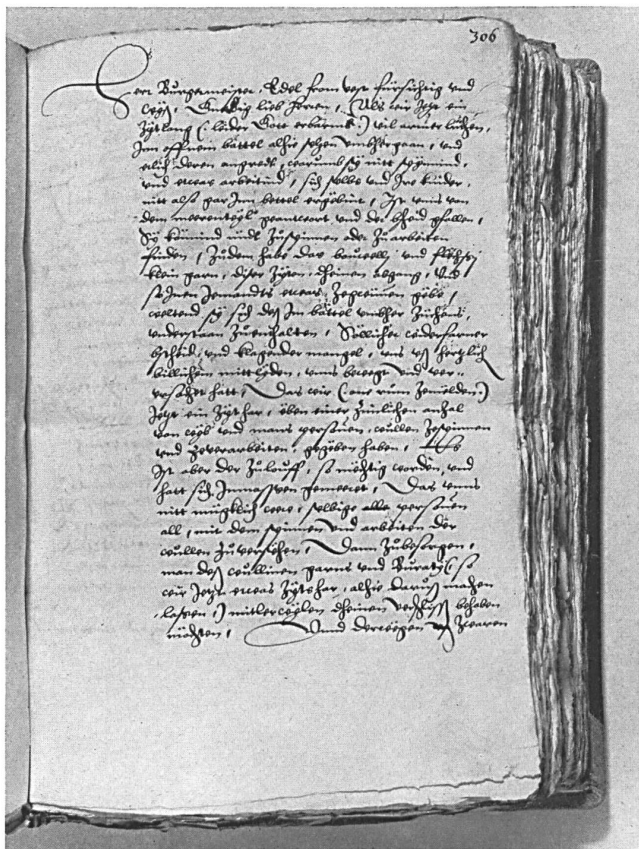 306
Herr Burgermeister, Edel from vest fürsichtig und
wyß, Gnedig lieb Herren, Als wir jetzt ein
Zytlang (leider Gott erbarms) vil armer lüthen,
Inn offnem bättel alhie sehen umbhergaan, und
etlich deren angredt, warumb sy nitt spynnind,
und etwas arbeitind, sich selbs und Ire kinder,
nitt also gar Inn bettel ergebint, Ist uns von
dem meerentheyl geantwort und der bscheid gfallen,
Sy könnind nüdt Zuspinnen oder Zuarbeiten
finden, Zudem habe das bouwelly und
klein garn, diser Zyten, dheinen abgang, Und
so Inen Jemandts etwas Zegwünnen gebe,
weltend sy sich deß Im bättel umbher Züchens,
understaan Zuenthalten, Söllicher
bscheid, und klagender mangel, uns uß hertzlich
billichem mittlyden, uns bewegt und ver-
ursachet hatt, Das wir (one rum Zemelden)
Jetzt ein Zyt har, eben einer Zimlichen anzal
von wyb und mans personen, wullen Zespinnen
und Zeverarbeiten, gegeben haben, Es
Ist aber der Zulouff, so mächtig worden, und
hatt sich Inmassen gemeeret, Das uns
nitt müglich were, selbige alle personen
all, mit dem spinnen und arbeiten der
wullen Zuversehen, Dann Zubesorgen,
man deß wullinen garns und Buratts (so
wir Jetzt etwas Zyts har, alhie daruß machen
lassen) mitlerwylen dheinen verschlyß behaben
möchten, Unnd derwegen